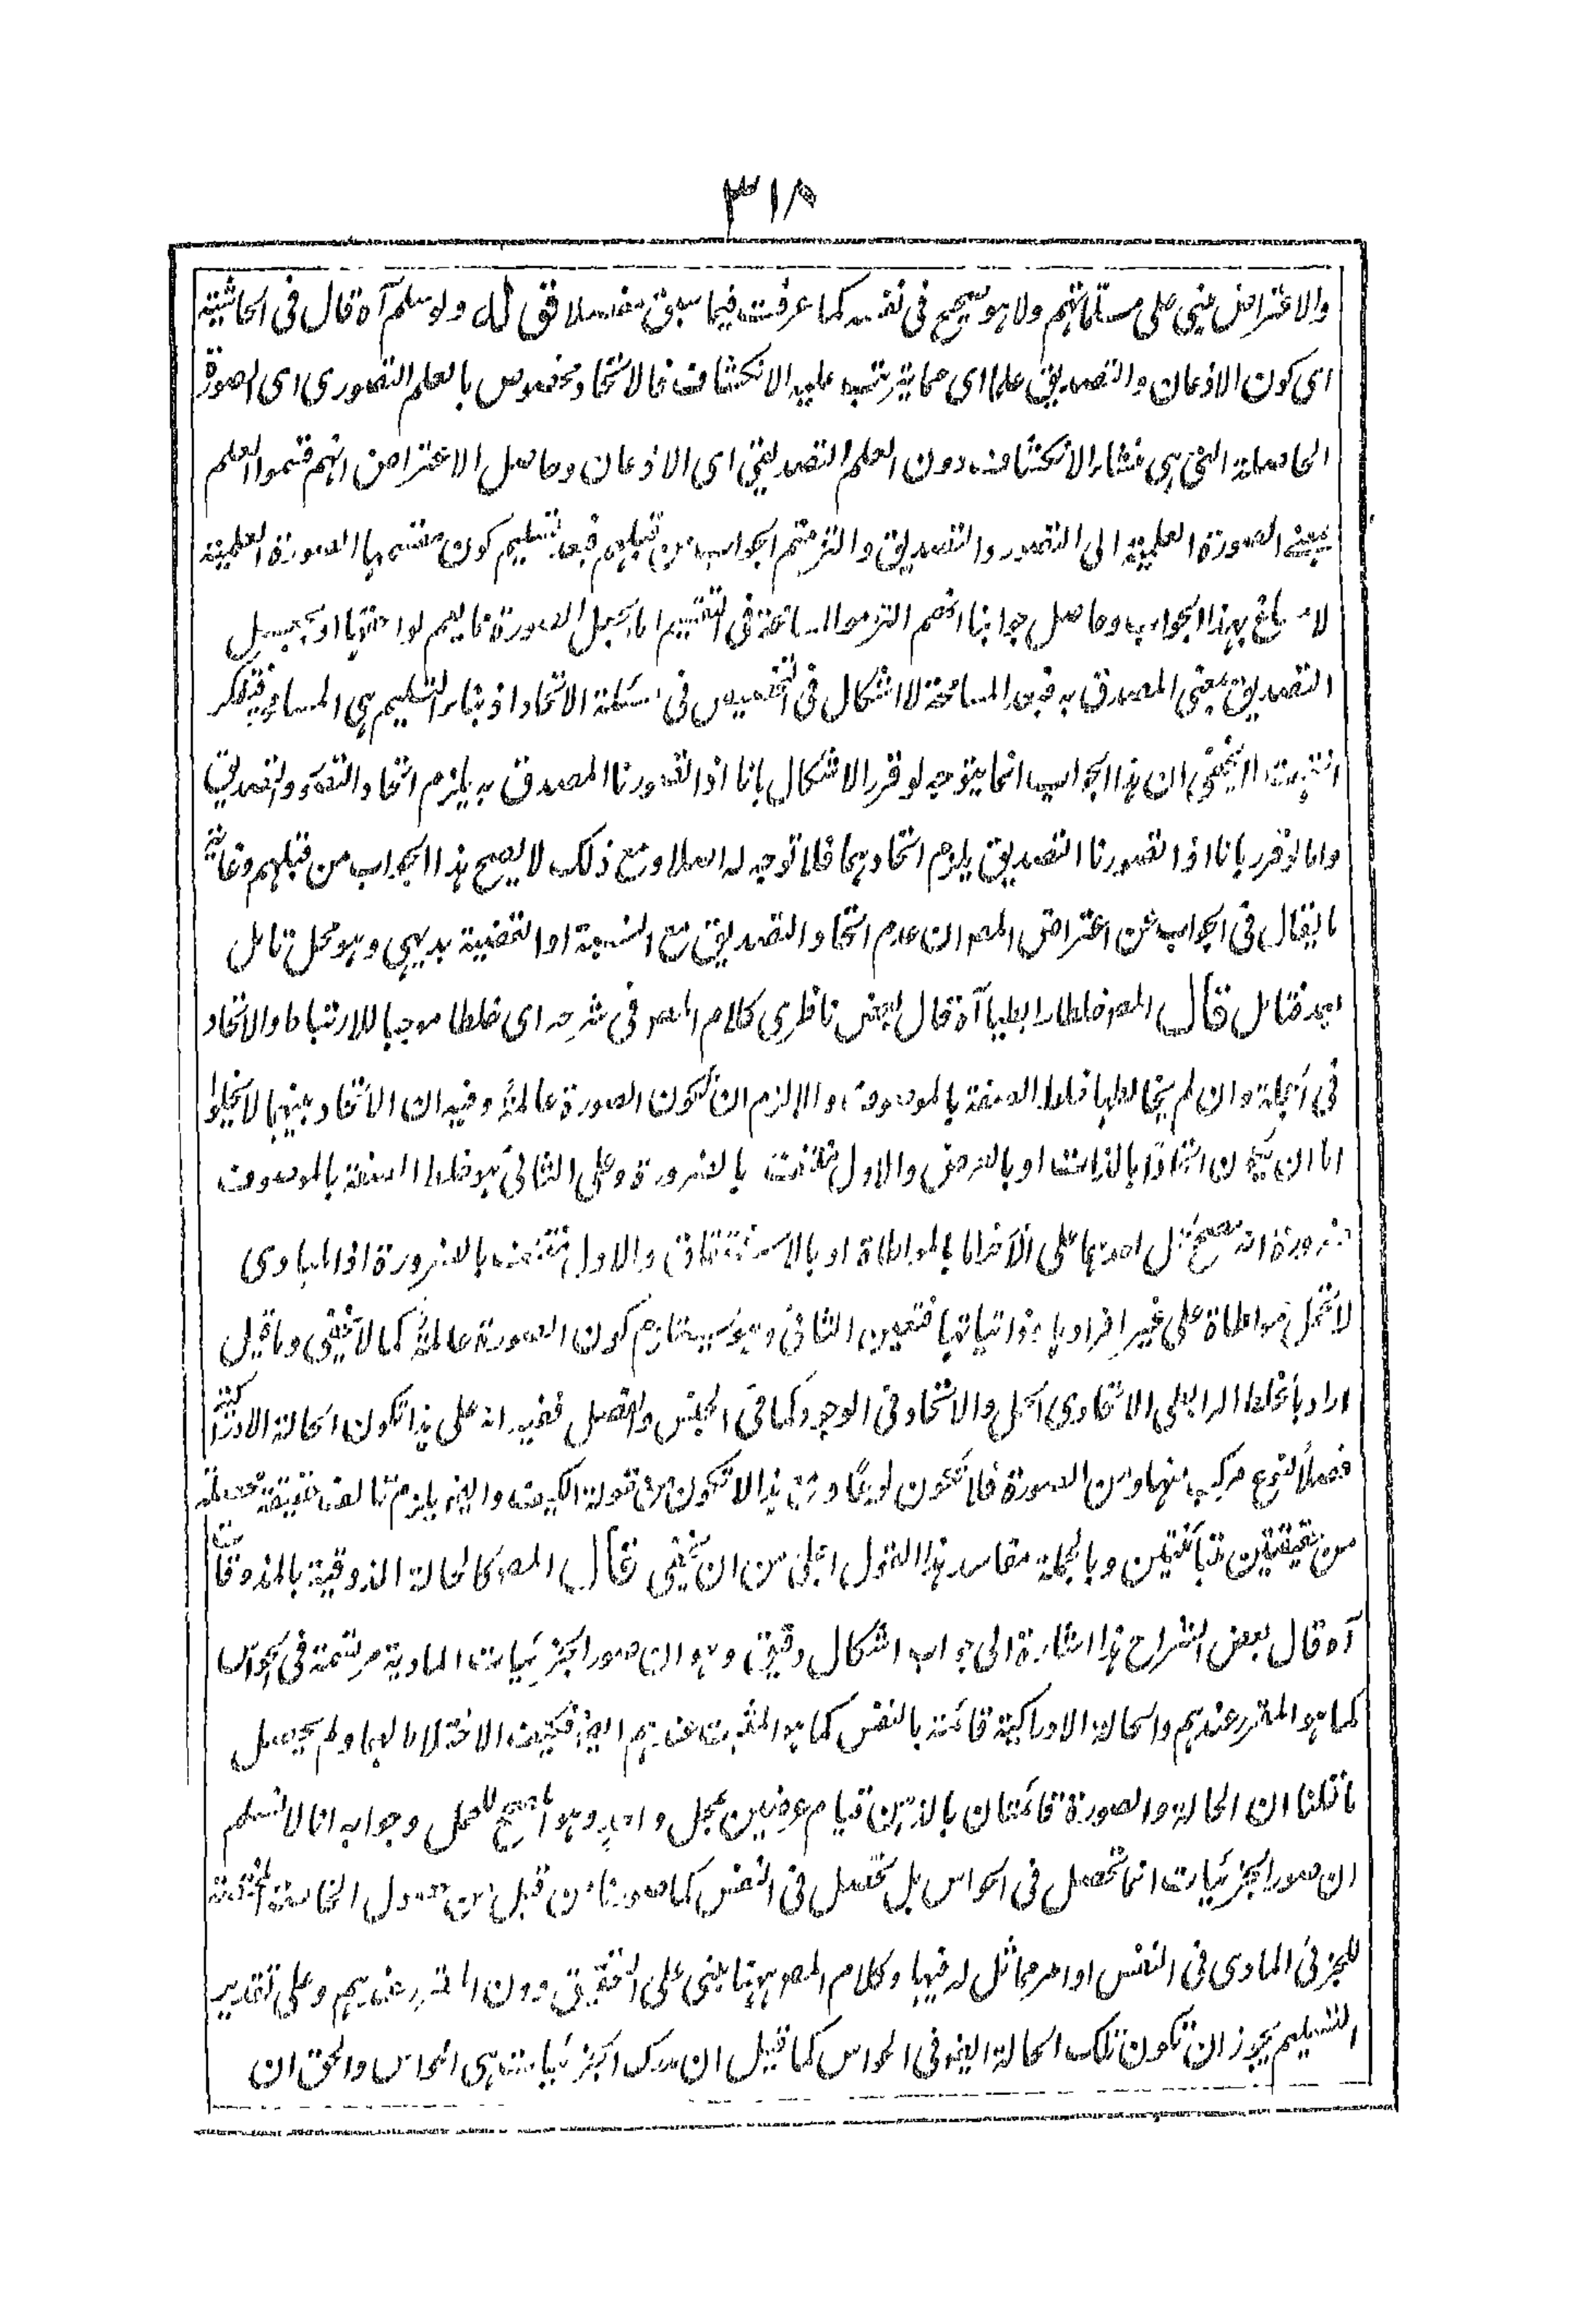 ٣١٨
والاعتراض مبنى على مسلماتهم ولا هو صحيح فى نفسه كما عرفت فيما سبق مفصلا قوله ولو سلم آه قال فى الحاشية
اى كون الاذعان والتصديق علما اى مما يترتب عليه الانكشاف فالاتحاد مخصوص بالعلم التصورى اى الصورة
الحاصلة التى هى منشاء الانكشاف دون العلم التصديقى اى الاذعان وحاصل الاعتراض انهم قسموا العلم
بمعنى الصورة العلمية الى التصور والتصديق والتزمتم الجواب من قبلهم فبعد تسليم كون مقسمها الصورة العلمية
لا مساغ لهذا الجواب وحاصل جوابنا انهم التزموا المسامحة فى التقسيم اما بجعل الصورة فا يعم لواحقها او بجعل
التصديق بمعنى المصدق به فبعد المسامحة لا اشكال فى التخصيص فى مسئلة الاتحاد اذ بناء التسليم هى المسامحة فتفكر
انتهت لا يخفى ان هذا الجواب انما يتوجه لو قرر الاشكال بانا اذا تصورنا المصدق به يلزم اتحاد التصور والتصديق
واما لو قرر بانا اذا تصورنا التصديق يلزم اتحادهما فلا توجه له اصلا ومع ذلك لا يصح هذا الجواب من قبلهم وغاية
ما يقال فى الجواب عن اعتراض المص ان عدم اتحاد التصديق مع النسبة او القضية بديهى وهو محل تامل
بعد فتامل قال المص خلطا رابطيا آه قال بعض ناظرى كلام المص فى شرحه اى خلطا موجبا للارتباط والاتحاد
فى الجملة وان لم يخالطها خلط الصفة بالموصوف والا لزم ان تكون الصورة عالمة وفيه ان الاتحاد بينهما لا يخلو
اما ان يكون اتحادا بالذات او بالعرض والاول منتف بالضرورة وعلى الثانى هو خلط الصفة بالموصوف
ضرورة انه يصح حمل احدهما على الآخر اما بالمواطاة او بالاشتقاق والاول منتف بالضرورة اذ المبادى
لا تحمل مواطاة على غير افرادها وذاتياتها فتعين الثانى وهو يستلزم كون الصورة عالمة كما لا يخفى وما قيل
اراد بالخلط الرابطى الاتحادى الحمل والاتحاد فى الوجود كما فى الجنس والفصل ففيه انه على هذا تكون الحالة الادراكية
فصلا لنوع مركب منها ومن الصورة فلا تكون نوعا ومع هذا لا تكون من مقولة الكيف وايضا يلزم تالف حقيقة محصلة
من حقيقتين متبائنتين وبالجملة مفاسد هذا القول اجلى من ان يخفى قال المص كالحالة الذوقية بالمذوقات
آه قال بعض الشراح هذا اشارة الى جواب اشكال دقيق وهو ان صور الجزئيات المادية مرتسمة فى الحواس
كما هو المقرر عندهم والحالة الادراكية قائمة بالنفس كما هو المثبت عندهم ايضا فكيف الاختلاط لهما ولم يحصل
ما قلنا ان الحالة والصورة قائمتان بالذهن قيام عرضين بمحل واحد وهو المصحح للحمل وجوابه انا لا نسلم
ان صور الجزئيات انما تحصل فى الحواس بل تحصل فى النفس كما صورنا من قبل من حصول الخاصة المختصة
للجزئى المادى فى النفس او امر مماثل له فيها وكلام المص ههنا مبنى على التحقيق دون المقرر عندهم وعلى تقدير
التسليم يجوز ان تكون تلك الحالة ايضا فى الحواس كما قيل ان مدرك الجزئيات هى الحواس والحق ان